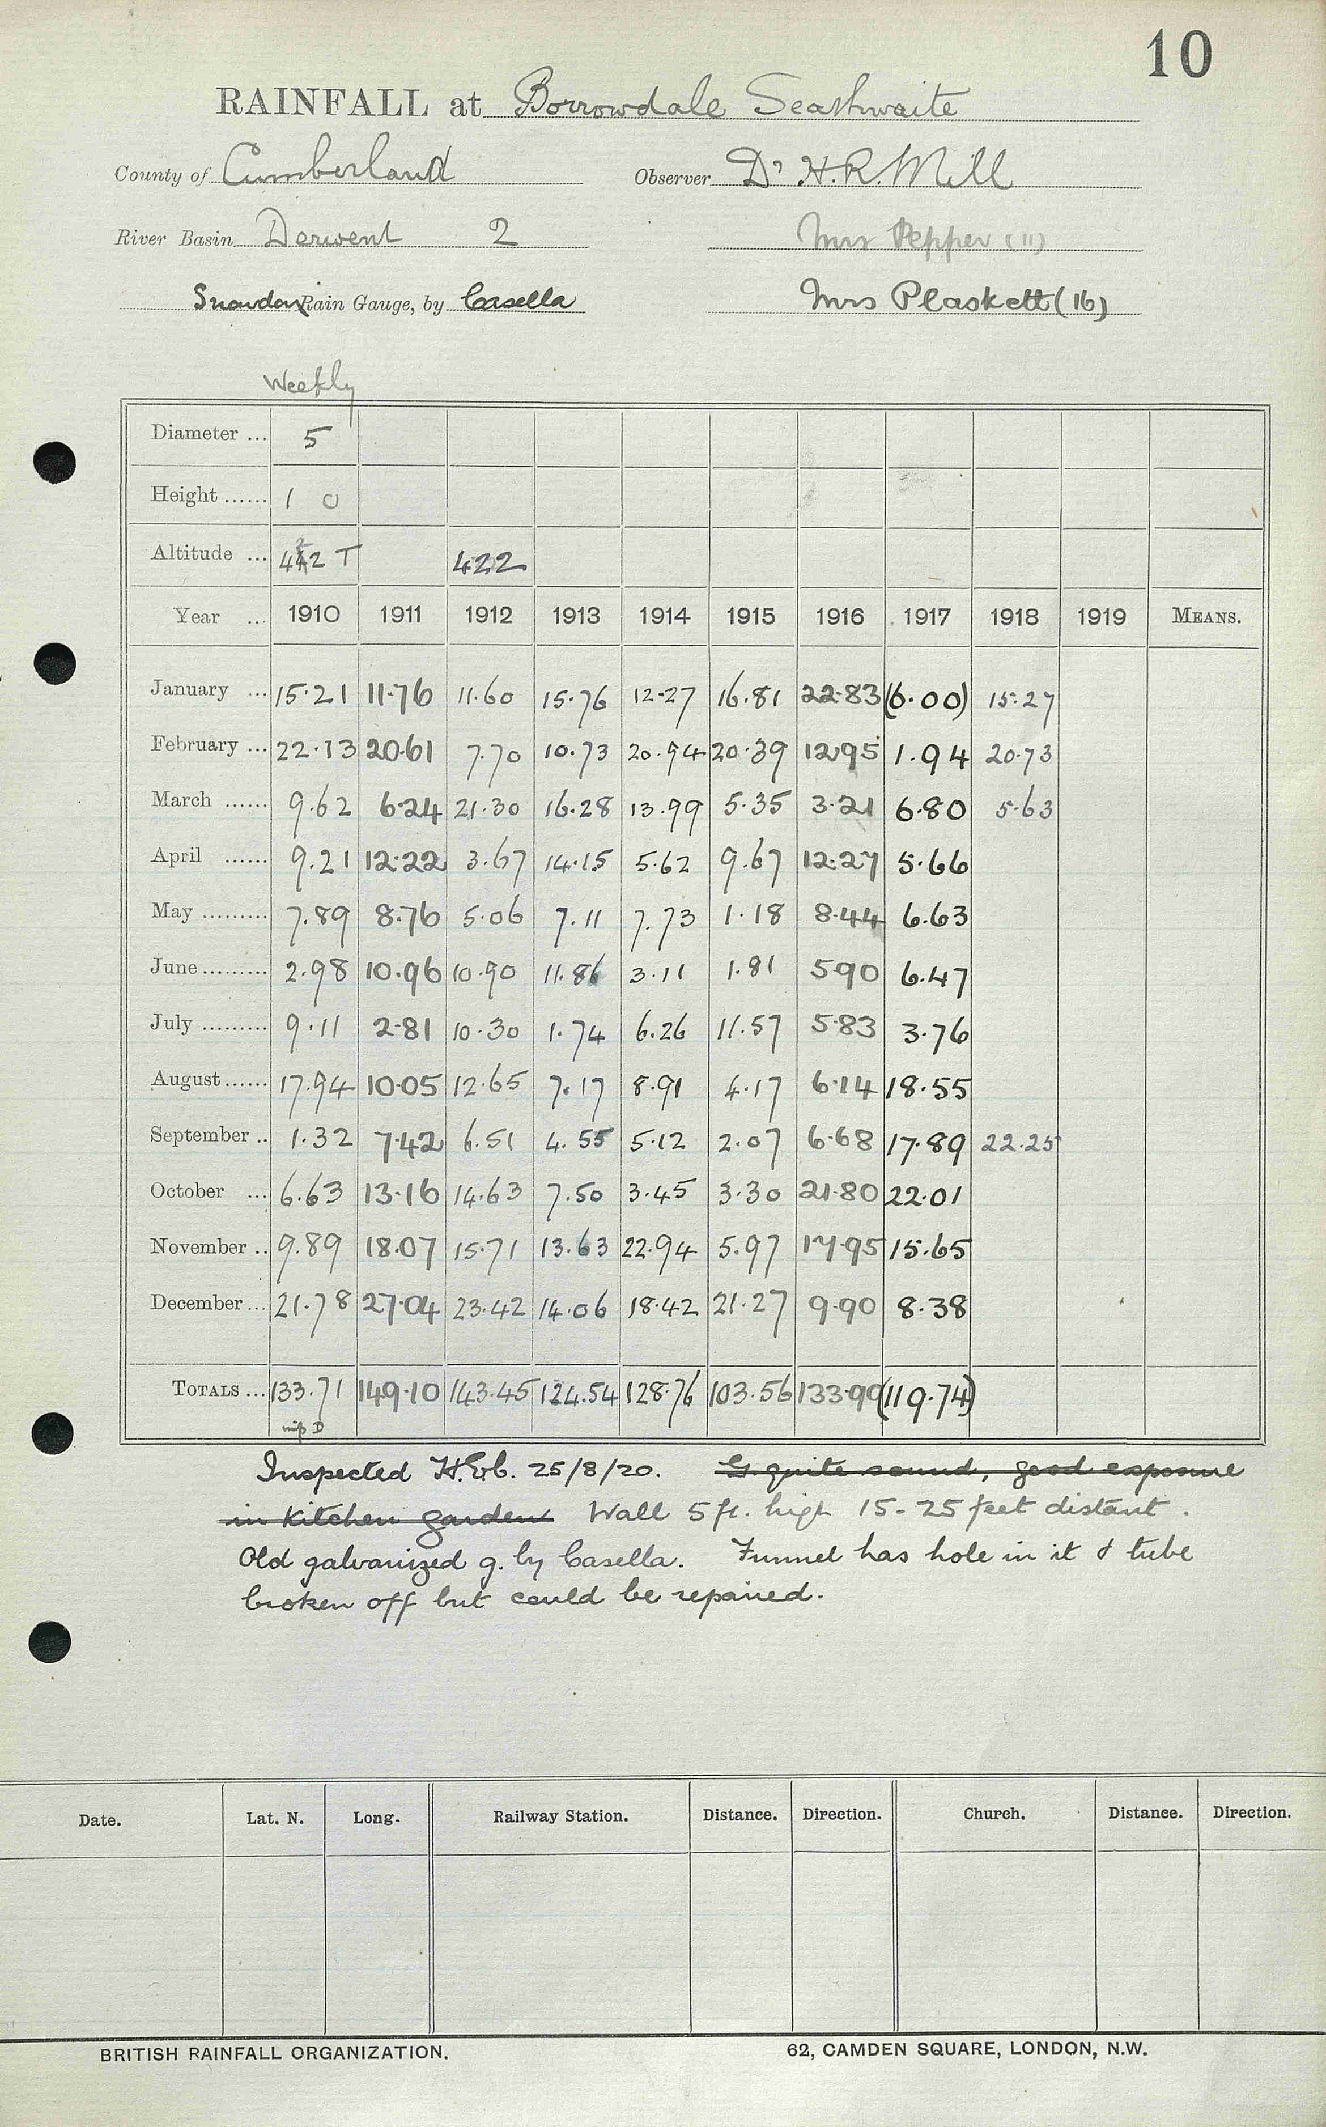 10
RAINFALL at Borrowdale Seathwaite
County of Cumberland Observer Dr H.R. Mill
River Basin Derwent 2 Mrs Pepper (11)
Snowdon Rain Gauge, by Casella Mrs Plaskett (16)
Weekly
Diameter ... 5
Height ...... 1 0
Altitude ... 422 T 422
Year ... 1910 1911 1912 1913 1914 1915 1916 1917 1918 1919 MEANS.
January ... 15.21 11.76 11.60 15.76 12.27 16.81 22.83 (6.00) 15.27
February ... 22.13 20.61 7.70 10.73 20.94 20.39 12.95 1.94 20.73
March ...... 9.62 6.24 21.30 16.28 13.99 5.35 3.21 6.80 5.63
April ...... 9.21 12.22 3.67 14.15 5.62 9.67 12.27 5.66
May ......... 7.89 8.76 5.06 7.11 7.73 1.18 8.44 6.63
June ......... 2.98 10.96 10.90 11.86 3.11 1.81 5.90 6.47
July ......... 9.11 2.81 10.30 1.74 6.26 11.57 5.83 3.76
August ...... 17.94 10.05 12.65 7.17 8.91 4.17 6.14 18.55
September .. 1.32 7.42 6.51 4.55 5.12 2.07 6.68 17.89 22.25
October ... 6.63 13.16 14.63 7.50 3.45 3.30 21.80 22.01
November .. 9.89 18.07 15.71 13.63 22.94 5.97 17.95 15.65
December ... 21.78 27.04 23.42 14.06 18.42 21.27 9.90 8.38
TOTALS ... 133.71 149.10 143.45 124.54 128.76 103.56 133.90 (119.74)
Inspected 25/8/20. G. quite sound, good exposure
in kitchen garden Wall 5 ft. high 15-25 feet distant.
Old galvanized g. by Casella. Funnel has hole in it & tube
broken off but could be repaired.
Date. Lat. N. Long. Railway Station. Distance. Direction. Church. Distance. Direction.
BRITISH RAINFALL ORGANIZATION. 62, CAMDEN SQUARE, LONDON, N.W.